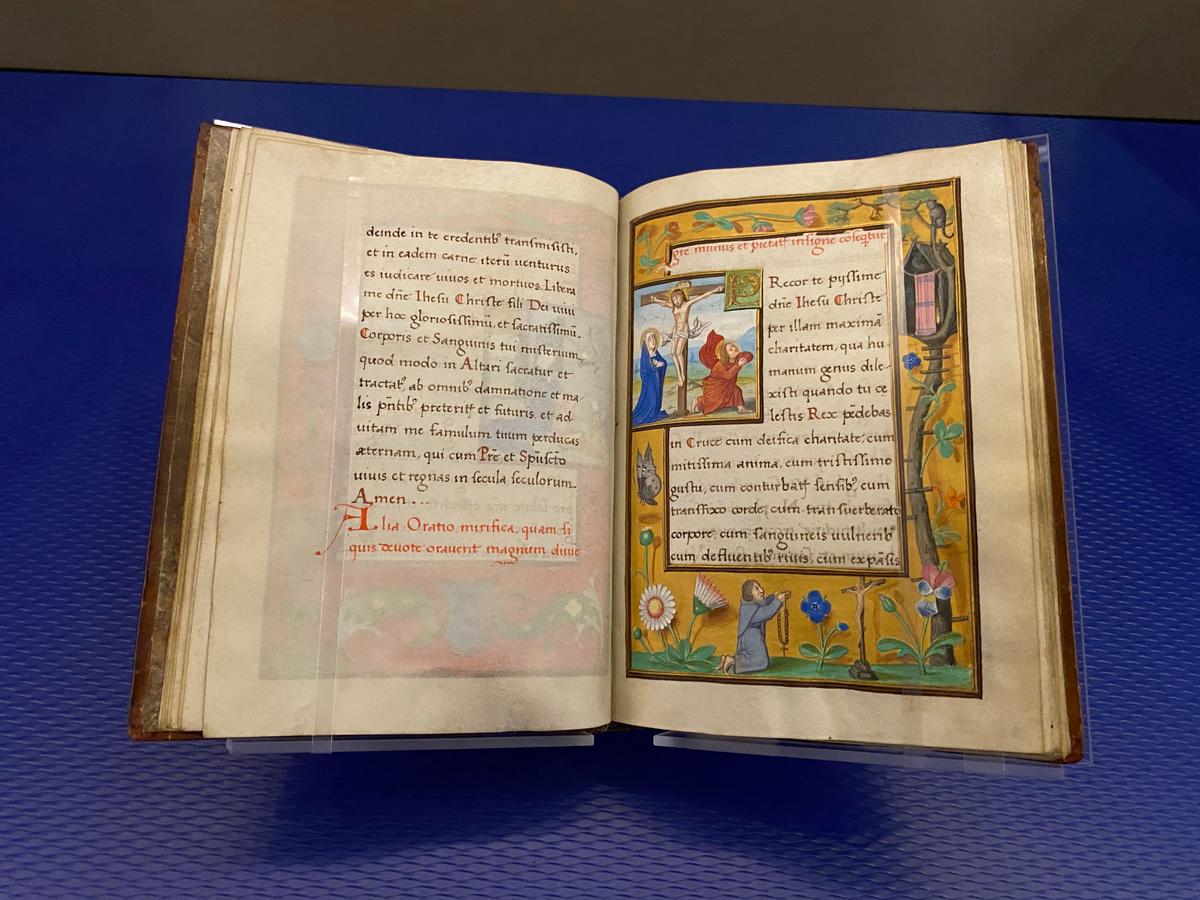 deinde in te credentibꝰ transmisisti,
et in eadem carne iterū venturus
es iudicare viuos et mortuos. Libera
me dn̄e Ihesu Christe fili Dei viui
per hoc gloriosissimū, et sacratissimū,
Corporis et Sanguinis tui misterum
quod modo in Altari sacratur et
tractatꝰ, ab omnibꝰ damnatione et ma
lis pn̄tibꝰ preteritꝭ et futuris, et ad
uitam me famulum tuum perducas
æternam, qui cum Pr̄e et Spūscto
viuis et regnas in secula seculorum
Amen...
Alia Oratio mirifica, quam si
quis deuote orauerit magnum diuue
gre munus et pietatꝭ insigne coseqtur
PRecor te pyssime
dn̄e Ihesu Christe
per illam maximā
charitatem, qua hu-
manum genus dile-
xisti quando tu ce
lestis Rex pēdebas
in Cruce cum deifica charitate, cum
mitissima anima, cum tristissimo
gustu, cum conturbatꝭ sensibꝰ, cum
transfixo corde, cum transuerberato
corpore, cum sanguineis vulneribꝰ
cum defluentibꝰ riuis, cum expāsis